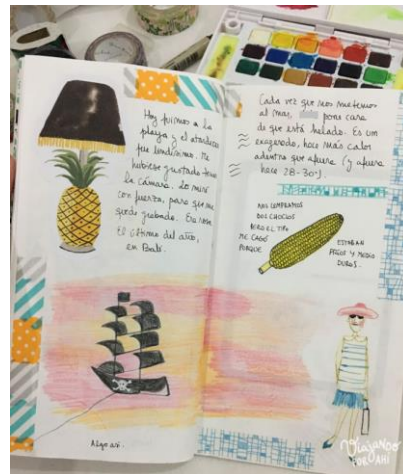 Hoy fuimos a la
playa y el atardecer
fue lindísimo. Me
hubiese gustado tener
la cámara. Lo miré
con fuerza, para que me
quede grabado. Era rosa.
El último del año,
en Bali.
Algo así.
Cada vez que nos metemos
al mar, pone cara
de que está helado. Es un
exagerado, hace más calor
adentro que afuera (y afuera
hace 28-30º).
NOS COMPRAMOS
DOS CHOCLOS
PERO EL TIPO
ME CAGÓ
PORQUE
ESTABAN
FRÍOS Y MEDIO
DUROS.
Viajando
por ahí